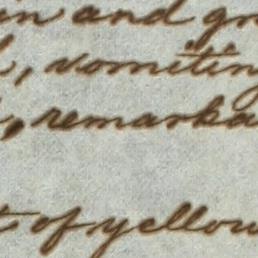 in and gr
, vomitin
, remarka
t of yellow